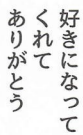 好きになって
くれて
ありがとう